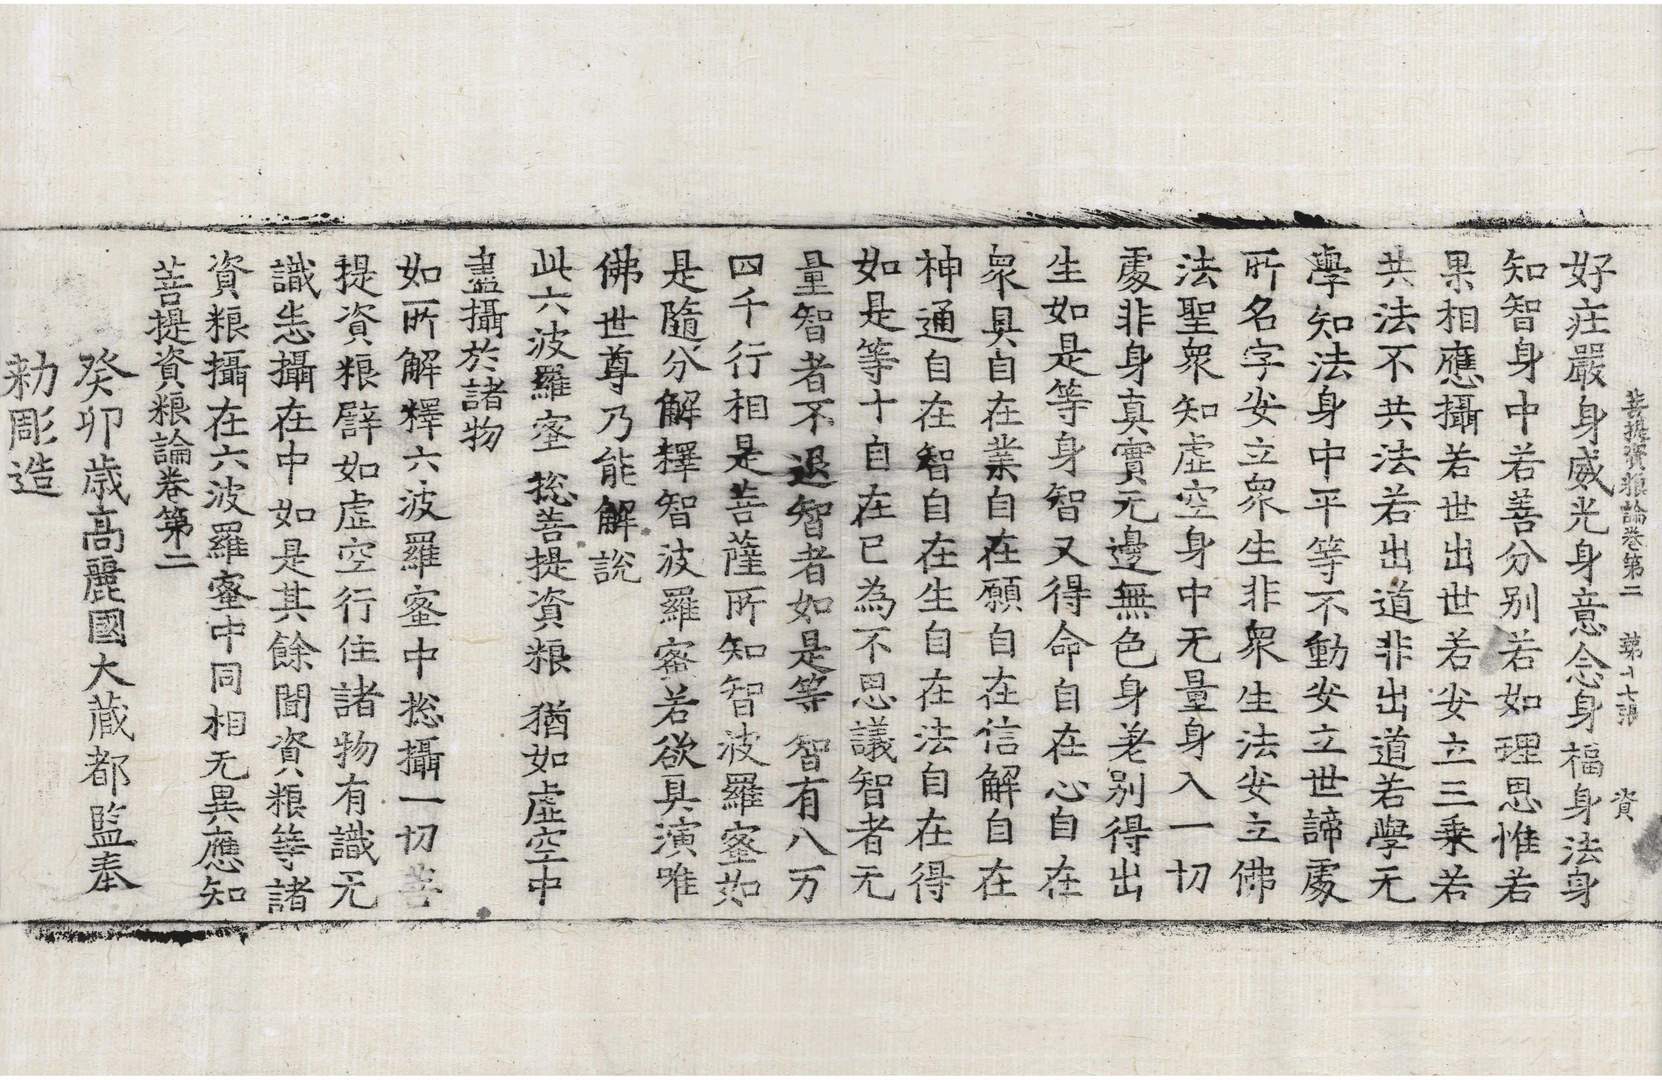 菩提資粮論卷第二　第十七張　資
好莊嚴身威光身意念身福身法身
知智身中若善分別若如理思惟若
果相應攝若世出世若安立三乗若
共法不共法若出道非出道若學无
學知法身中平等不動安立世諦處
所名字安立衆生非衆生法安立佛
法聖衆知虛空身中无量身入一切
處非身真實无邊無色身差別得出
生如是等身智又得命自在心自在
衆具自在業自在願自在信解自在
神通自在智自在生自在法自在得
如是等十自在已為不思議智者无
量智者不退智者如是等智有八万
四千行相是菩薩所知智波羅蜜如
是隨分解釋智波羅蜜若欲具演唯
佛世尊乃能解說
此六波羅蜜　総菩提資粮　猶如虛空中
盡攝於諸物
如所解釋六波羅蜜中総攝一切菩
提資粮譬如虛空行住諸物有識无
識悉攝在中如是其餘聞資粮等諸
資粮攝在六波羅蜜中同相无異應知
菩提資粮論卷第二
癸卯歲高麗國大藏都監奉
勑彫造